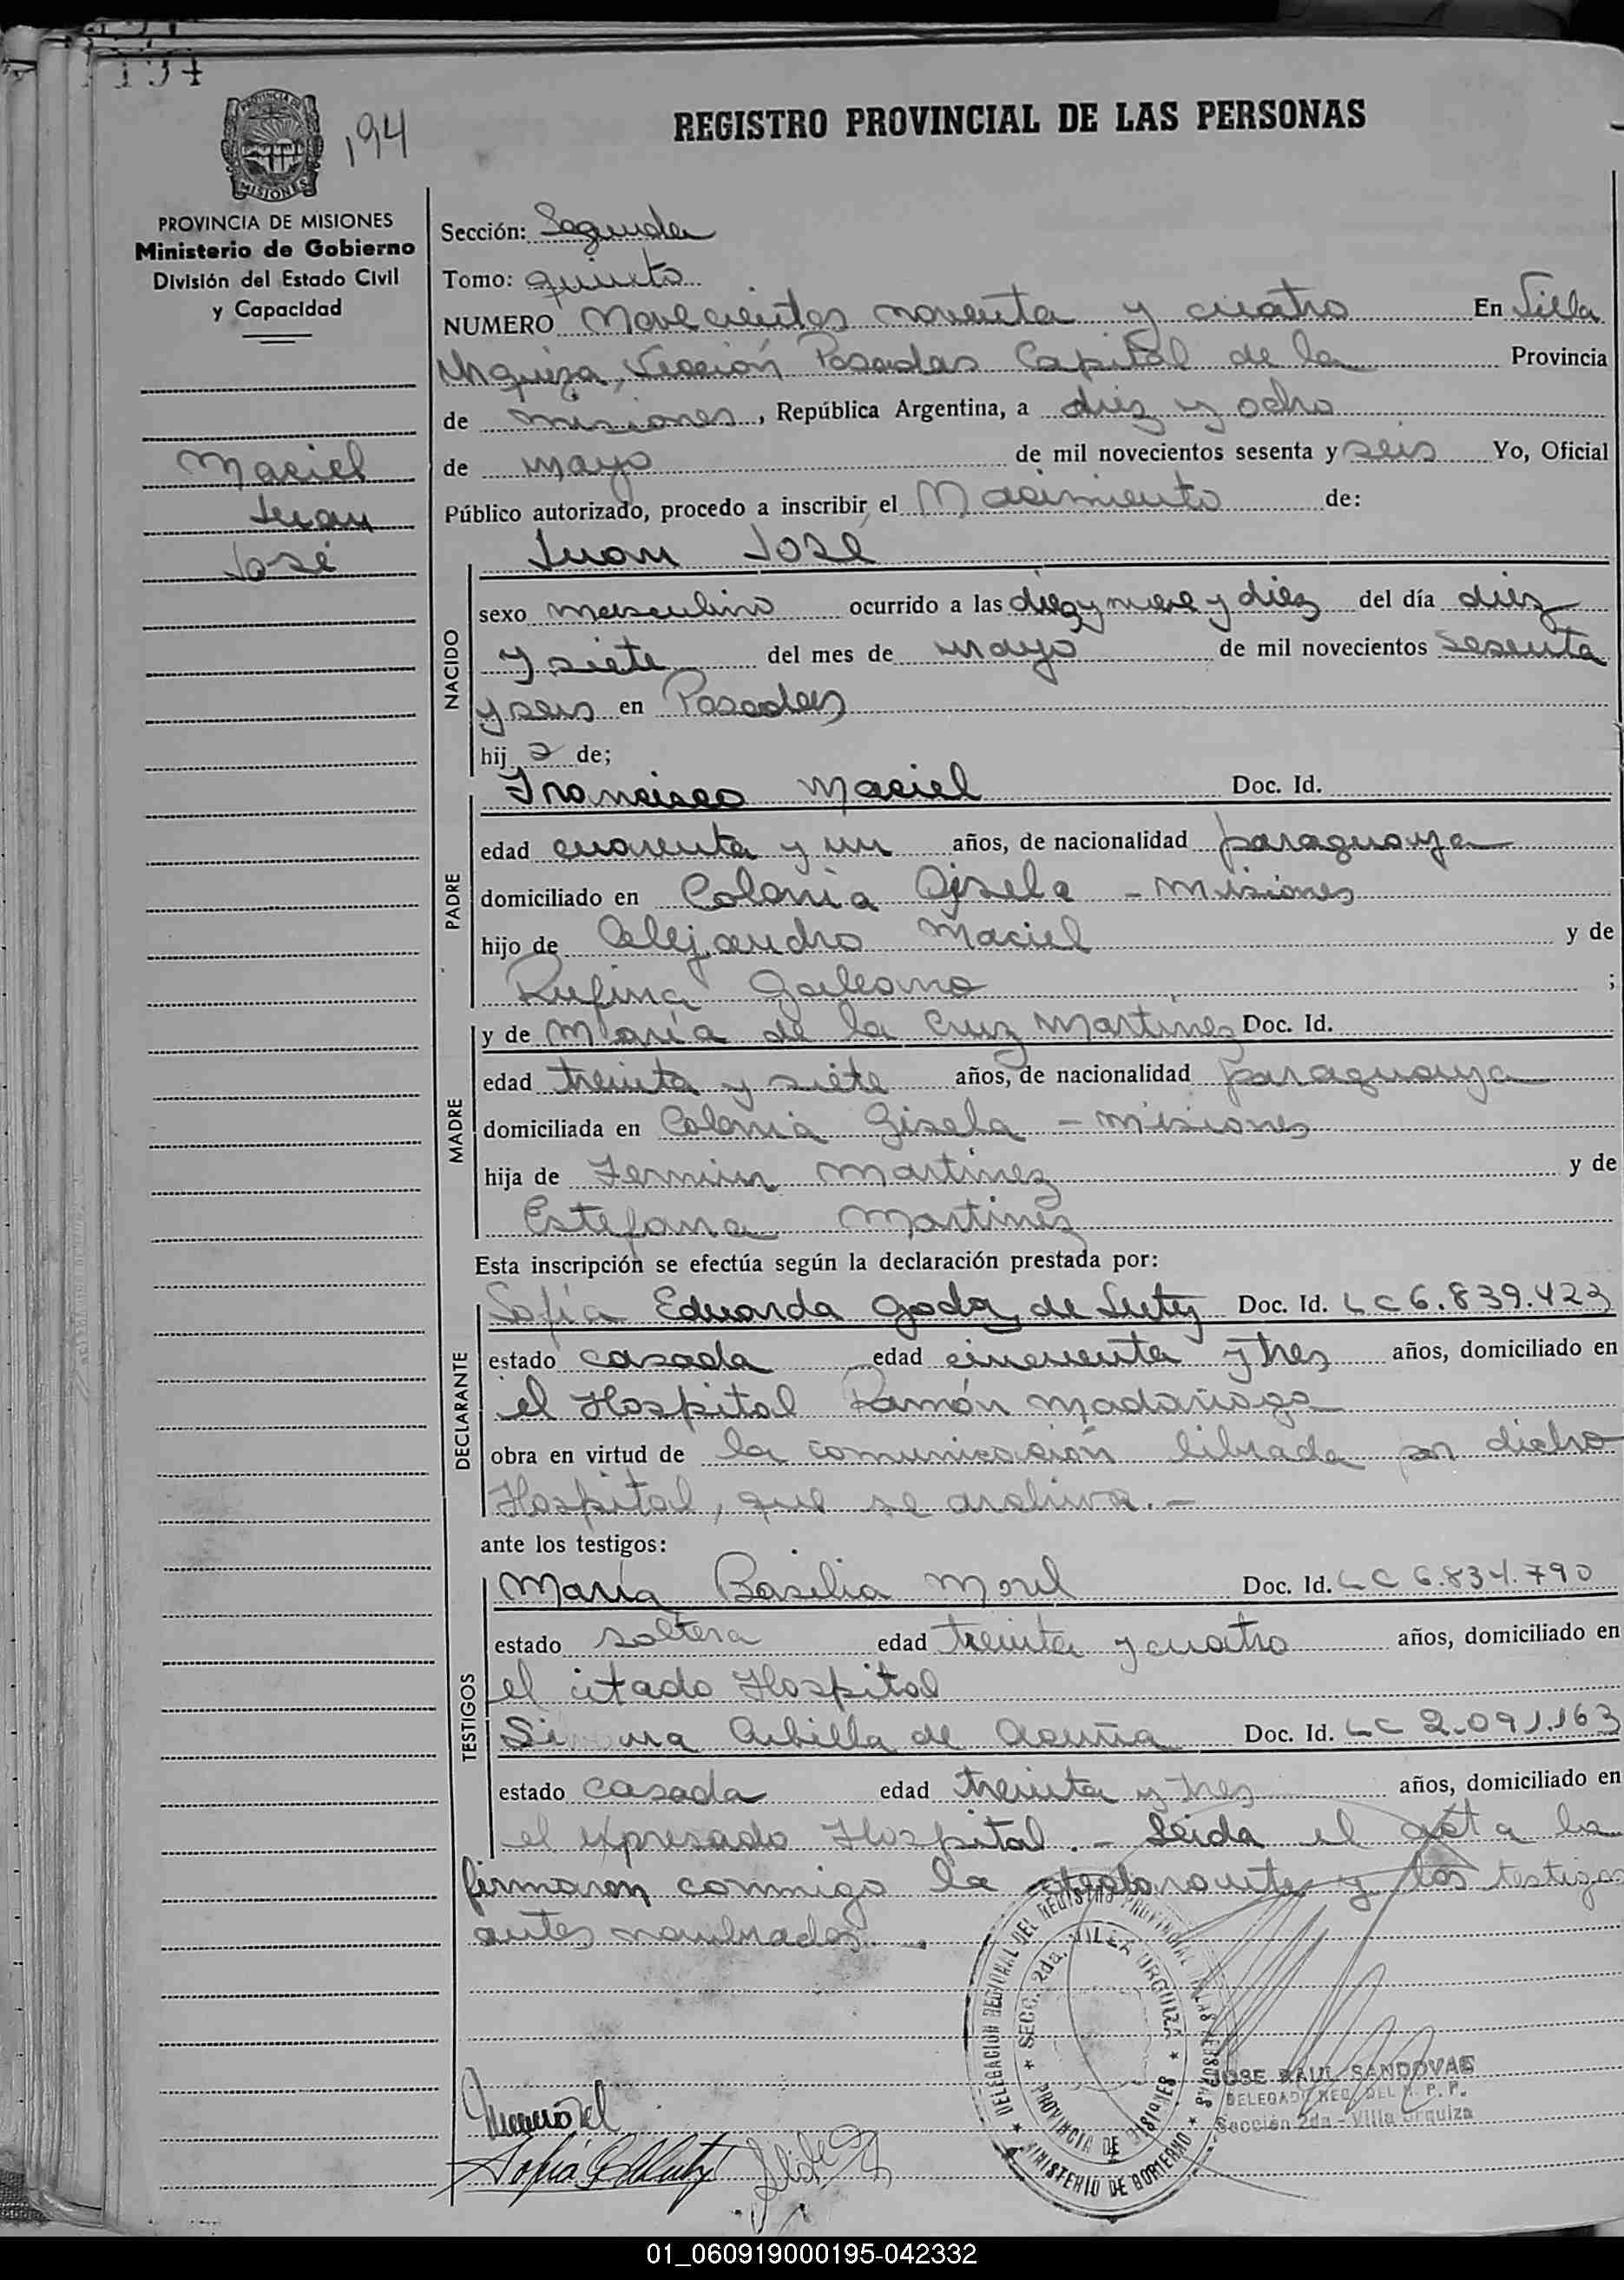 194
REGISTRO PROVINCIAL DE LAS PERSONAS
PROVINCIA DE MISIONES
Ministerio de Gobierno
División del Estado Civil
y Capacidad
Maciel
Juan
José
Sección: Segunda
Tomo: quinto
NUMERO Novecientos noventa y cuatro En Villa
Urquiza, Sección Posadas Capital de la Provincia
de misiones, República Argentina, a diez y ocho
de mayo de mil novecientos sesenta y seis Yo, Oficial
Público autorizado, procedo a inscribir el Nacimiento de:
Juan José
NACIDO
sexo masculino ocurrido a las diez y nueve y diez del día diez
y siete del mes de mayo de mil novecientos sesenta
y seis en Posadas
hij o de;
Francisco Maciel Doc. Id.
PADRE
edad cuarenta y un años, de nacionalidad paraguaya
domiciliado en Colonia Gisela - Misiones
hijo de Alejandro Maciel y de
Rufina Galeano ;
y de María de la Cruz Martinez Doc. Id.
MADRE
edad treinta y siete años, de nacionalidad paraguaya
domiciliada en Colonia Gisela - Misiones
hija de Fermin Martinez y de
Estefana Martinez
Esta inscripción se efectúa según la declaración prestada por:
Sofía Eduarda Godoy de Doc. Id. LC 6.839.423
DECLARANTE
estado casada edad cincuenta y tres años, domiciliado en
el Hospital Ramón Madariaga
obra en virtud de la comunicación librada por dicho
Hospital, que se archiva. -
ante los testigos:
María Basilia Morel Doc. Id. LC 6.834.790
TESTIGOS
estado soltera edad treinta y cuatro años, domiciliado en
el citado Hospital
Arbilla de Acuña Doc. Id. LC 2.091.163
estado casada edad treinta y tres años, domiciliado en
el expresado Hospital. - Leida el acta la
firmaron conmigo la declarante y los testigos
antes nombrados.
DELEGACION REGIONAL DEL REGISTRO PROVINCIAL DE LAS PERSONAS
SECC. 2da. VILLA URQUIZA
PROVINCIA DE MISIONES
MINISTERIO DE GOBIERNO
JOSE RAUL SANDOVAL
DELEGADO REG. DEL R. P. P.
Sección 2da - Villa Urquiza
01_060919000195-042332